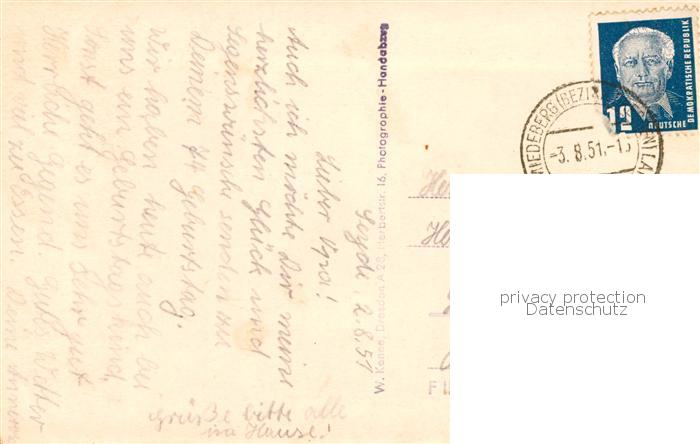 Seyde 2.8.51
Lieber Opa!
Auch ich möchte Dir meine
herzlichsten Glück und
Segenswünsche senden zu
Deinem 74 Geburtstag.
Wir haben heute auch bei
uns ein Geburtstagskind.
Sonst geht es uns sehr gut
Herrliche Gegend. Gutes Wetter
und viel zu Essen. Deine
grüße bitte alle
im Hause!
W. Kenne, Dresden A 28, Herbertstr. 16, Photographie-Handabzug
DEUTSCHE
DEMOKRATISCHE REPUBLIK
12
MIEDEBERG (BEZ
-3.8.51.-1
He
He
F
privacy protection
Datenschutz